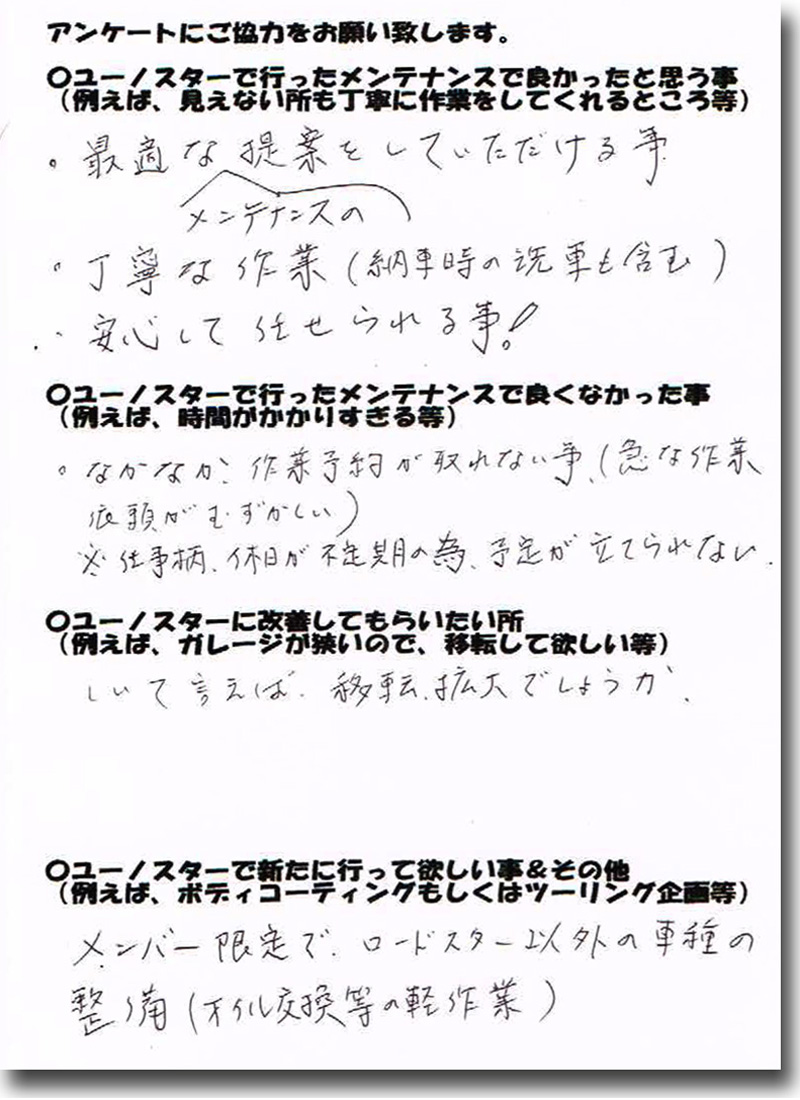 アンケートにご協力をお願い致します。
〇ユーノスターで行ったメンテナンスで良かったと思う事
（例えば、見えない所も丁寧に作業をしてくれるところ等）
・最適な提案をしていただける事
メンテナンスの
・丁寧な作業（納車時の洗車も含む）
・安心して任せられる事！
〇ユーノスターで行ったメンテナンスで良くなかった事
（例えば、時間がかかりすぎる等）
・なかなか、作業予約が取れない事、（急な作業
依頼がむずかしい）
※仕事柄、休日が不定期の為、予定が立てられない。
〇ユーノスターに改善してもらいたい所
（例えば、ガレージが狭いので、移転して欲しい等）
しいて言えば、移転、拡大でしょうか。
〇ユーノスターで新たに行って欲しい事＆その他
（例えば、ボディコーティングもしくはツーリング企画等）
メンバー限定で、ロードスター以外の車種の
整備（オイル交換等の軽作業）